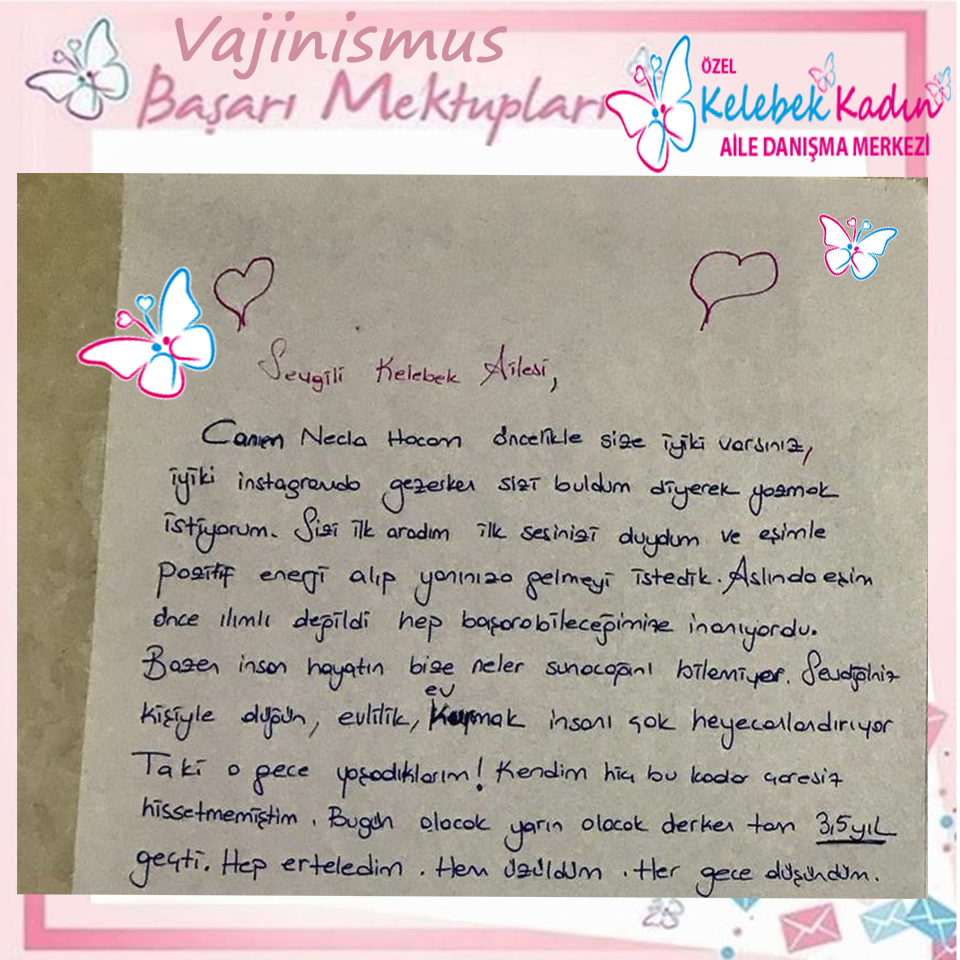 Vajinismus
Başarı Mektupları
ÖZEL
Kelebek Kadın
AİLE DANIŞMA MERKEZİ
Sevgili Kelebek Ailesi,
Canım Necla Hocam öncelikle size iyiki varsınız,
iyiki instagramda gezerken sizi buldum diyerek yazmak
istiyorum. Sizi ilk aradım ilk sesinizi duydum ve eşimle
pozitif energi alıp yanınıza gelmeyi istedik. Aslında eşim
önce ılımlı değildi hep başarabileceğimize inanıyordu.
Bazen insan hayatın bize neler sunacağını bilemiyor. Sevdiğiniz
kişiyle düğün, evlilik, ev kurmak insanı çok heyecanlandırıyor
Taki o gece yaşadıklarım! Kendim hiç bu kadar çaresiz
hissetmemiştim. Bugün olacak yarın olacak derken tam 3,5 yıl
geçti. Hep erteledim. Hem üzüldüm. Her gece düşündüm.